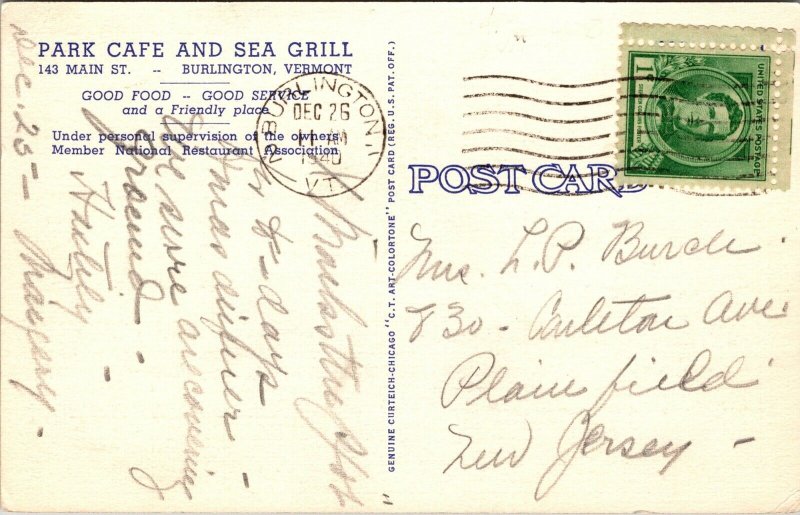 PARK CAFE AND SEA GRILL
143 MAIN ST. -- BURLINGTON, VERMONT
GOOD FOOD -- GOOD SERVICE
and a Friendly place
Under personal supervision of the owners
Member National Restaurant Association
BURLINGTON
DEC 26
AM
1940
VT.
UNITED STATES POSTAGE
1
POST CARD
GENUINE CURTEICH-CHICAGO "C. T. ART-COLORTONE" POST CARD (REG. U.S. PAT. OFF.)
Breakfast
for to-days
Xmas dinner -
We sure are covering
ground -
Dec. 25 -
Mrs. L. P. Burch.
830 - Carleton Ave
Plainfield
New Jersey -